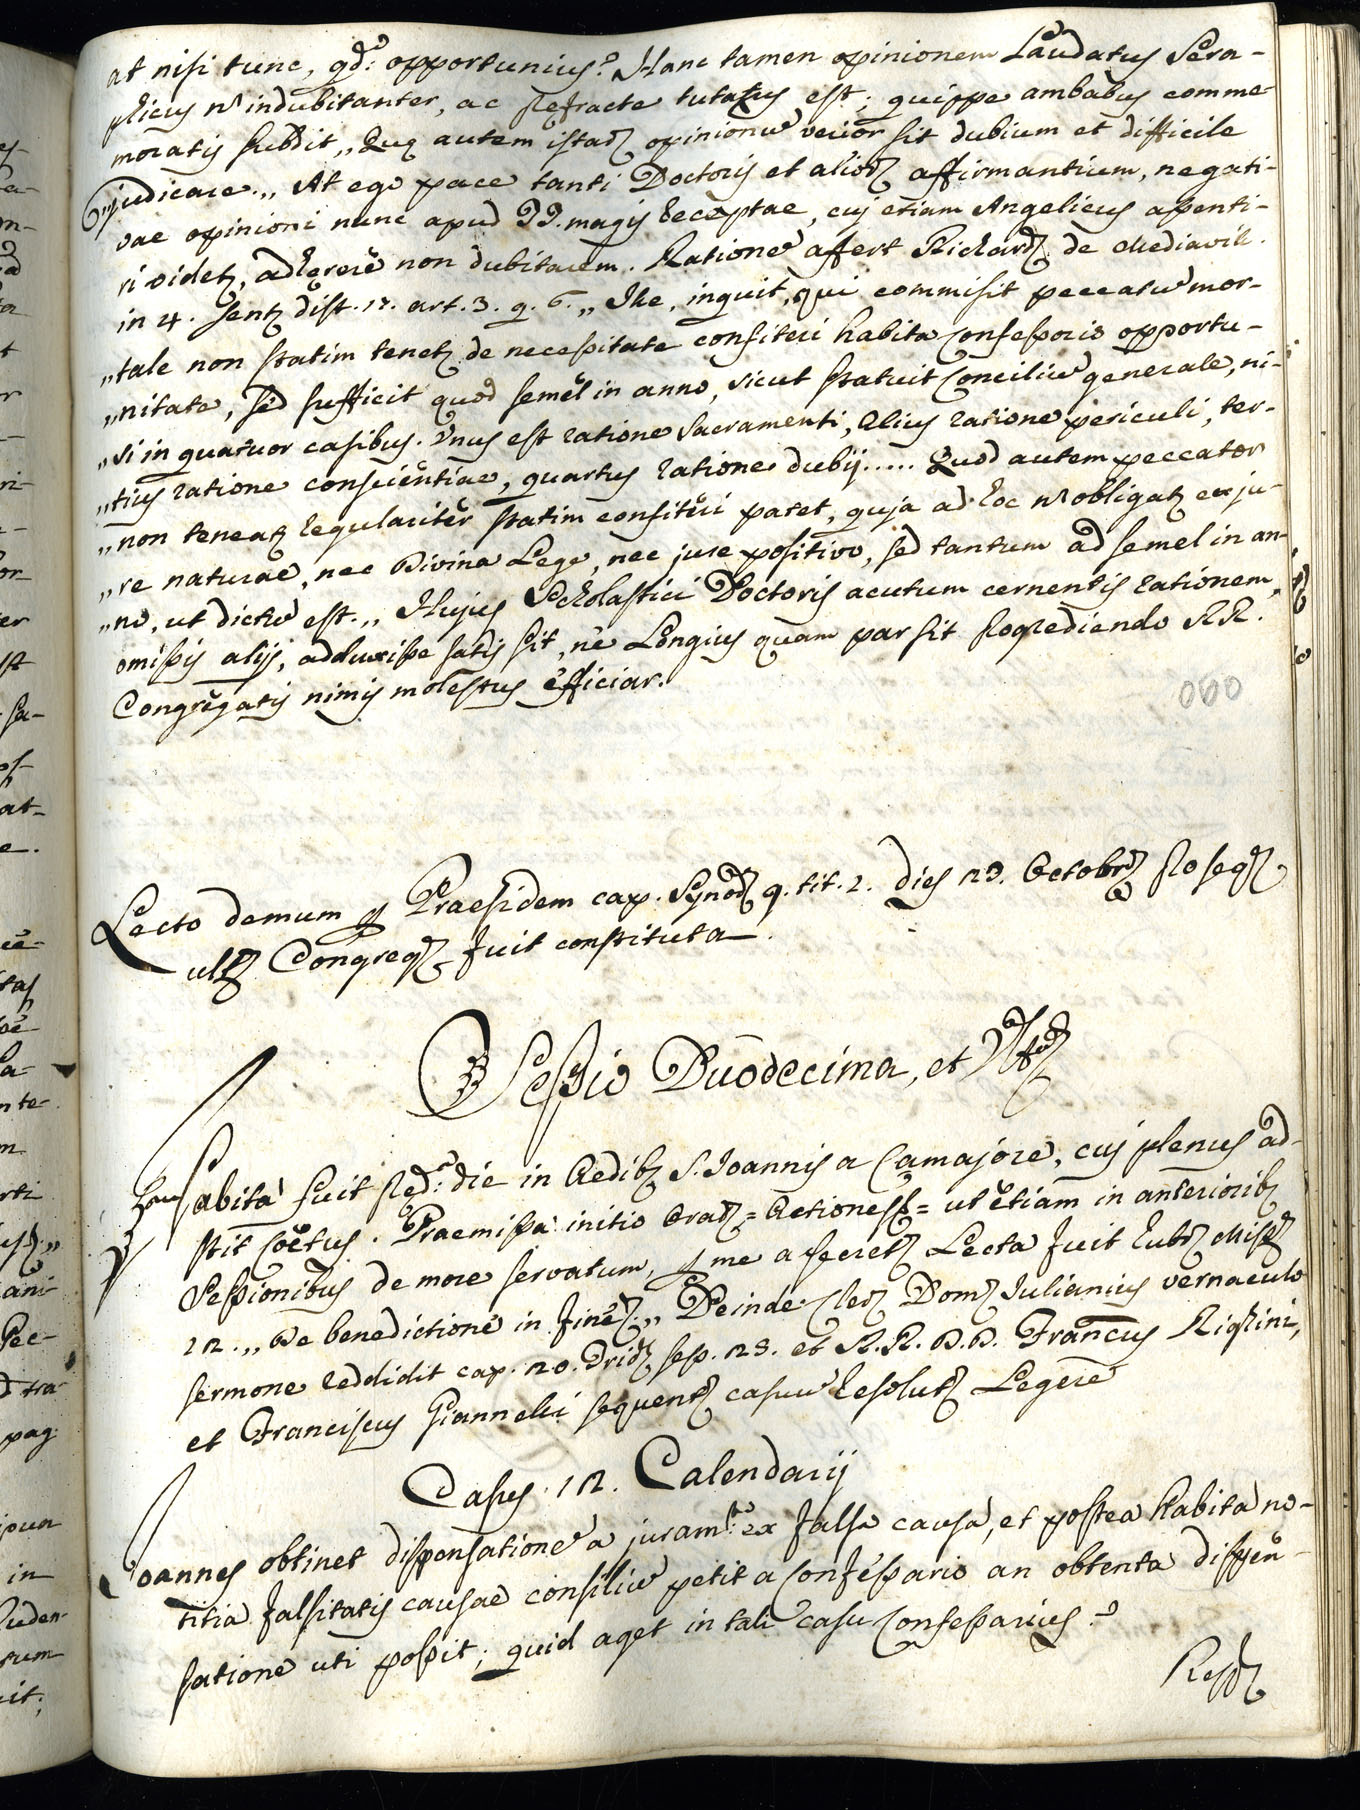 at nisi tunc, qd: opportunius? Hanc tamen opinionem Laudatus Sera-
phicus nõ indubitanter, ac refracte tutatus est; quippe ambabus comme-
moratis subdit „Quę autem istarũ opinionũ verior sit dubium et difficile
judicare.„ At ego pace tanti Doctoris et aliorũ affirmantium, negati-
vae opinioni nunc apud TT. magis receptae, cuj etiam Angelicus assenti-
ri videt, adherere non dubitarem. Rationẽ affert Richard de Mediavil.
in 4. Sent dist. 17. art. 3. q. 6. „ Ille, inquit, qui commisit peccatũ mor-
„tale non statim tenet de necessitate confiteri habita Confessoris opportu-
„nitate, sed sufficit quod semel in anno, sicut statuit Conciliũ generale, ni-
„si in quatuor casibus. Unus est ratione Sacramenti, Alius ratione periculi, ter-
„tius ratione conscientiae, quartus ratione dubij..... Quod autem peccator
„non teneat regulariter statim confiteri patet, quja ad hoc nõ obligat ex ju-
„re naturae, nec Divina Lege, nec jure positivo, sed tantum ad semel in an-
„no, ut dictũ est.„ Hujus Scholastici Doctoris acutum cernentis rationem,
omissis alijs, adduxisse satis sit, ne Longius quam par sit progrediendo RR.
Congregatis nimis molestus efficiar.
000
Lecto demum p Praesidem cap. Synod 9. tit. 2. dies 23. Octobr pro seq
ult Congreg fuit constituta.
Sessio Duodecima, et Ult
Habita fuit pred: die in Aedib S. Joannis a Camajore, cuj plenus ad-
stit Coetus. Praemissa initio Orat = Actiones = ut etiam in anteriorib
Sessionibus de more servatum, p me a Secret Lecta fuit Rubr Miss
12. „De benedictione in fine.„ Deinde Cler Dom Julianius vernaculo
sermone reddidit cap. 20. Trid sess. 23. et R.R. D.D. Francus Righini,
et Franciscus Giannelli sequent casuũ resolut Legere
Casus 12. Calendarij
Joannes obtinet dispensationẽ a juramto: ex falsa causa, et postea habita no-
titia falsitatis causae consiliũ petit a Confessario an obtenta dispen-
satione uti possit; quid aget in tali casu Confessarius?
Resp